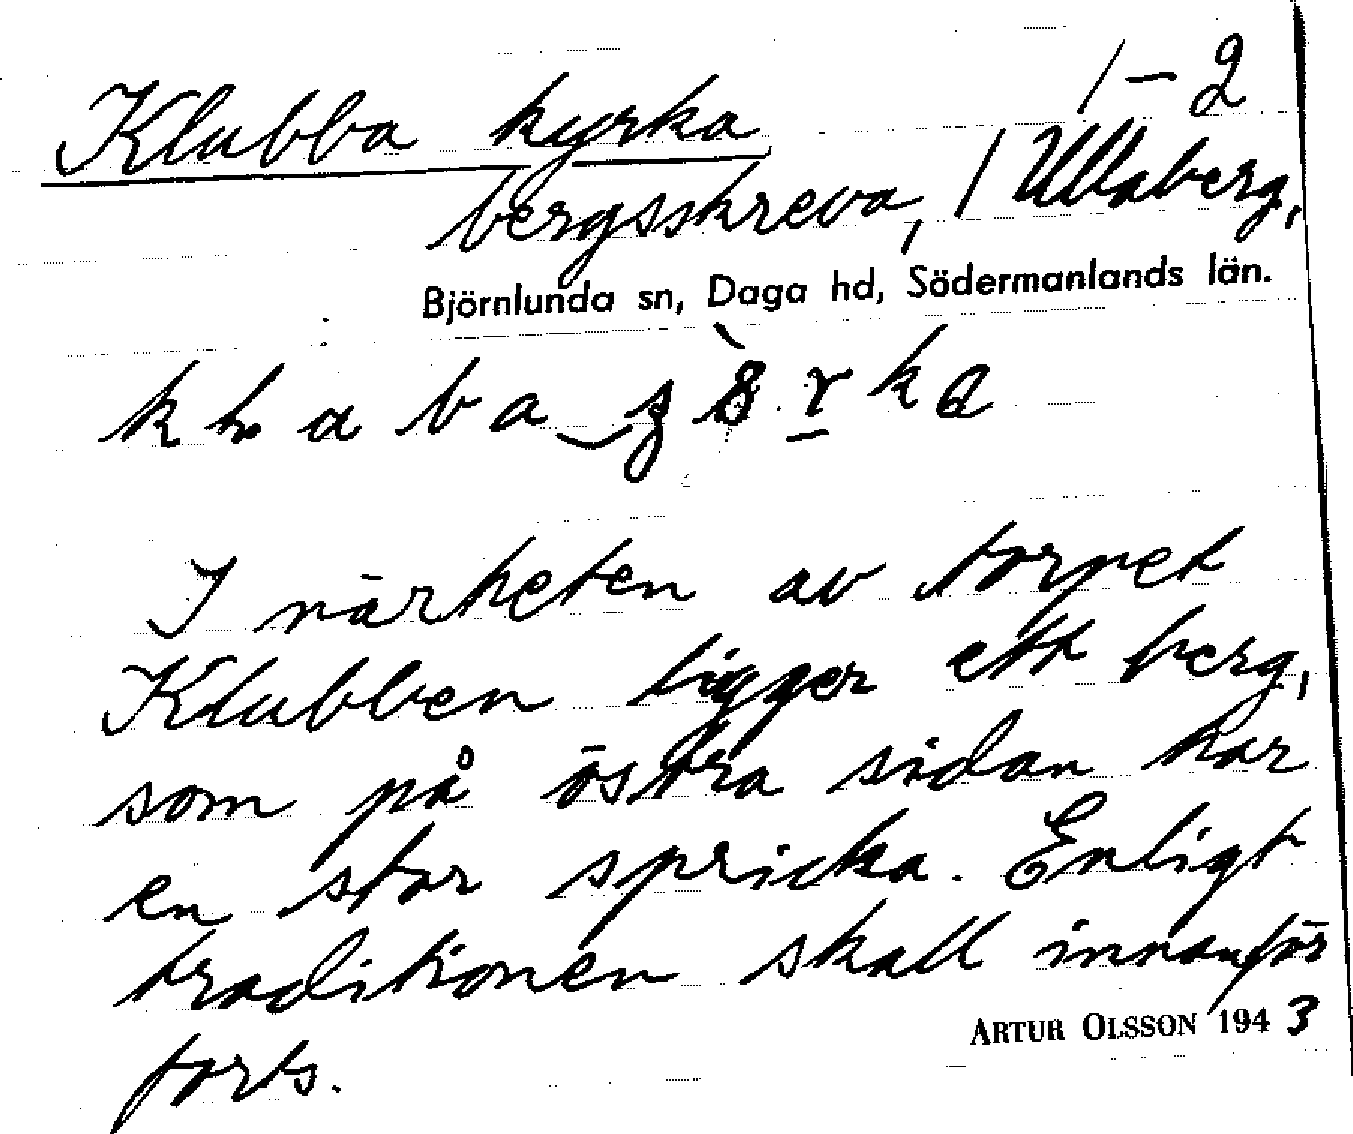 1-2
Klubba kyrka
bergsskreva, / Ullaberg,
Björnlunda sn, Daga hd, Södermanlands län.
I närheten av torpet
Klubben ligger ett berg,
som på östra sidan har
en stor spricka. Enligt
traditionen skall innanför
forts.
ARTUR OLSSON 1943